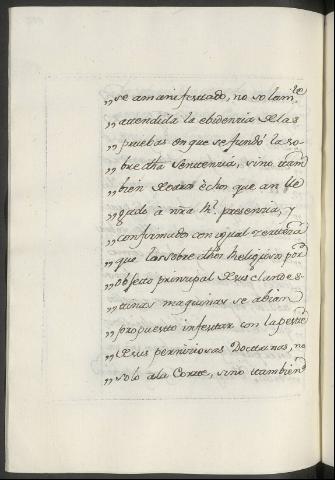 ,, se a manifestado, no solam.te
,, attendida la ebidenzia de las
,, pruebas en que se fundó la so-
,, bre dha Sentenzia, sino tam
,, bien de otros echos que an lle
,, gado à nra R.l presenzia, y
,, confirmado con igual zerteza
,, que los sobre dhos Religiosos por
,, obfecto prinzipal de sus clandes-
,, tinas maquinas se abian
,, propuesto infestar con la peste
,, de sus perniziosas Doctrinas, no
,, solo a la Corte, sino tambien